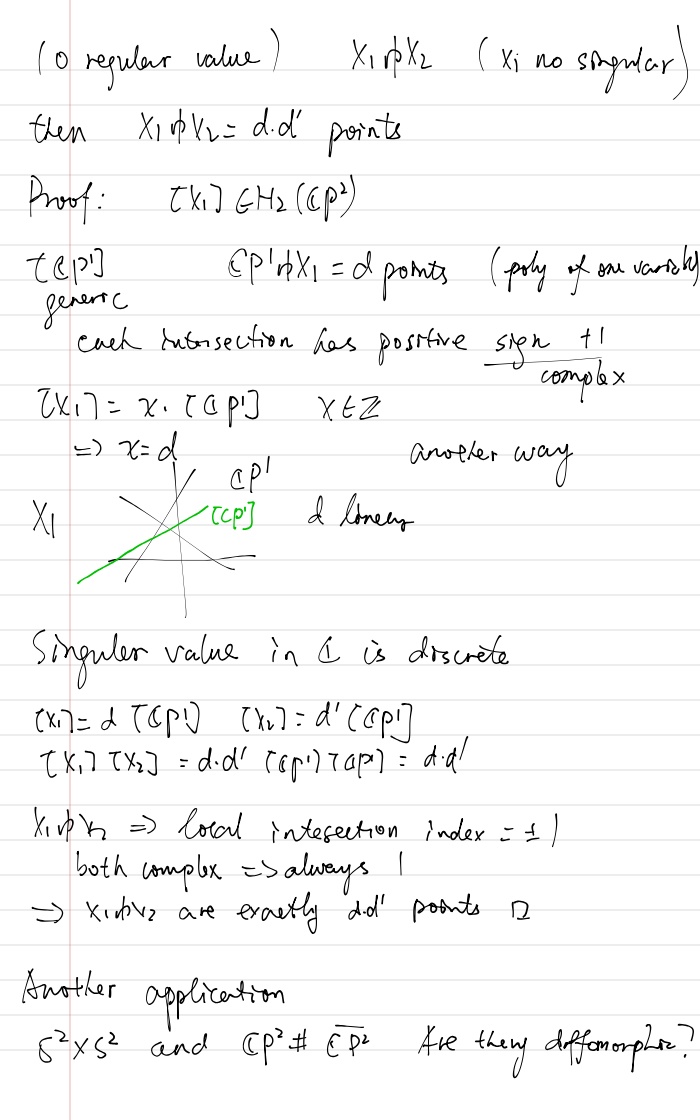 (0 regular value) X₁⋔X₂ (Xi no singular)
then X₁⋔X₂ = d·d' points
Proof: [X₁] ∈ H₂(ℂP²)
[ℂP¹] ℂP¹⋔X₁ = d points (poly of one variable)
generic
each intersection has positive sign +1
complex
[X₁] = x·[ℂP¹] x∈ℤ
=> x=d another way
ℂP¹
X₁ [ℂP¹] d linear
Singular value in ℂ is discrete
[X₁] = d [ℂP¹] [X₂] = d'[ℂP¹]
[X₁] [X₂] = d·d' [ℂP¹][ℂP¹] = d·d'
X₁⋔X₂ => local intesection index = ±1
both complex => always 1
=> X₁⋔X₂ are exactly d·d' points □
Another application
S²×S² and ℂP² # \overline{ℂP²} Are they diffomorphic?